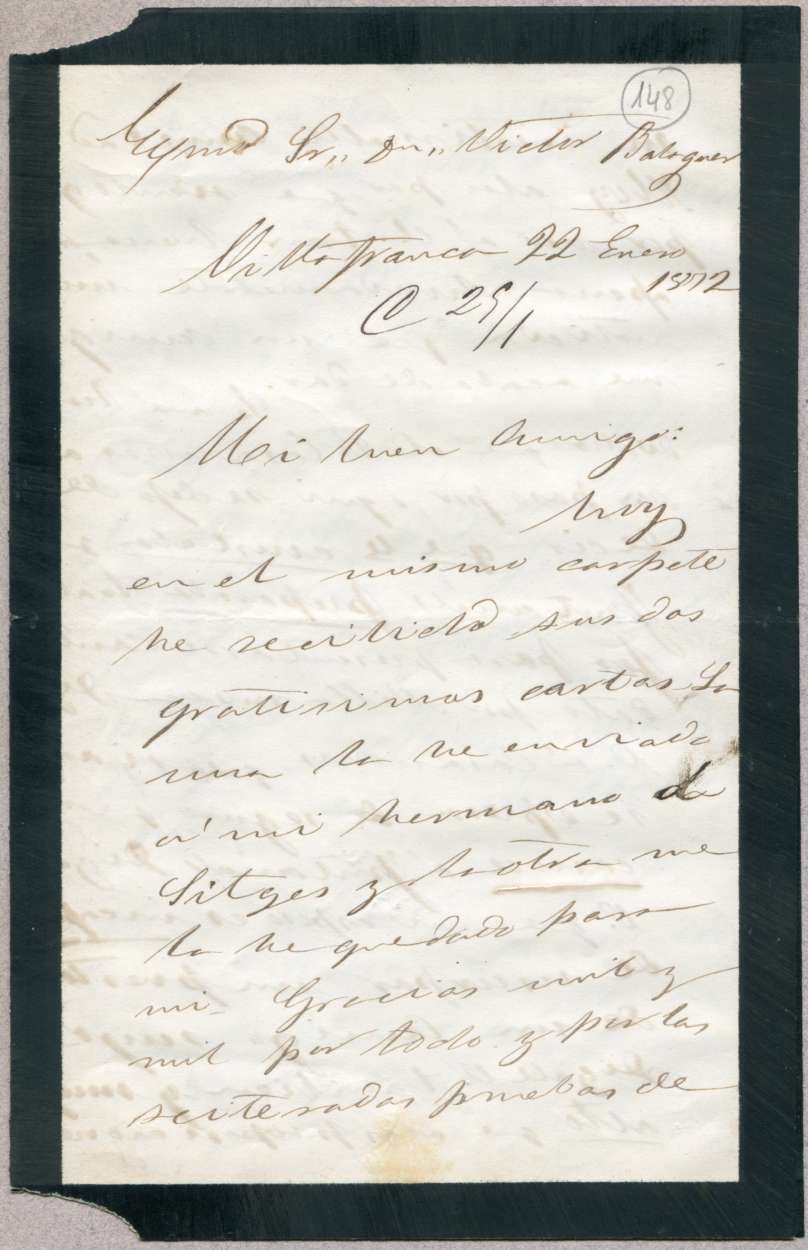 148
Exmo Sr,, Dn,, Victor Balaguer
Villafranca 22 Enero
1872
C 25/1
Mi buen Amigo:
hoy
en el mismo carpete
he recibido sus dos
gratisimas cartas La
una la he enviado
a' mi hermano de
Sitges y la otra me
la he quedado para
mi. Gracias mil y
mil por todo y por las
reiteradas pruebas de